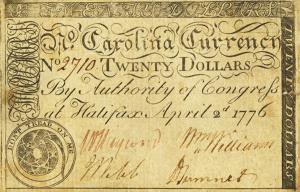 No. Carolina Currency
No 2710 TWENTY DOLLARS
By Authority of Congress
at Halifax April 2d 1776
DONT TREAD ON ME
Wm Williams
J Webb
TWENTY DOLLARS